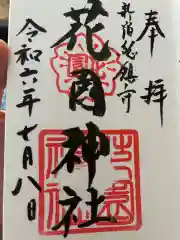 奉拝
新宿総鎮守
花園神社
令和六年七月八日